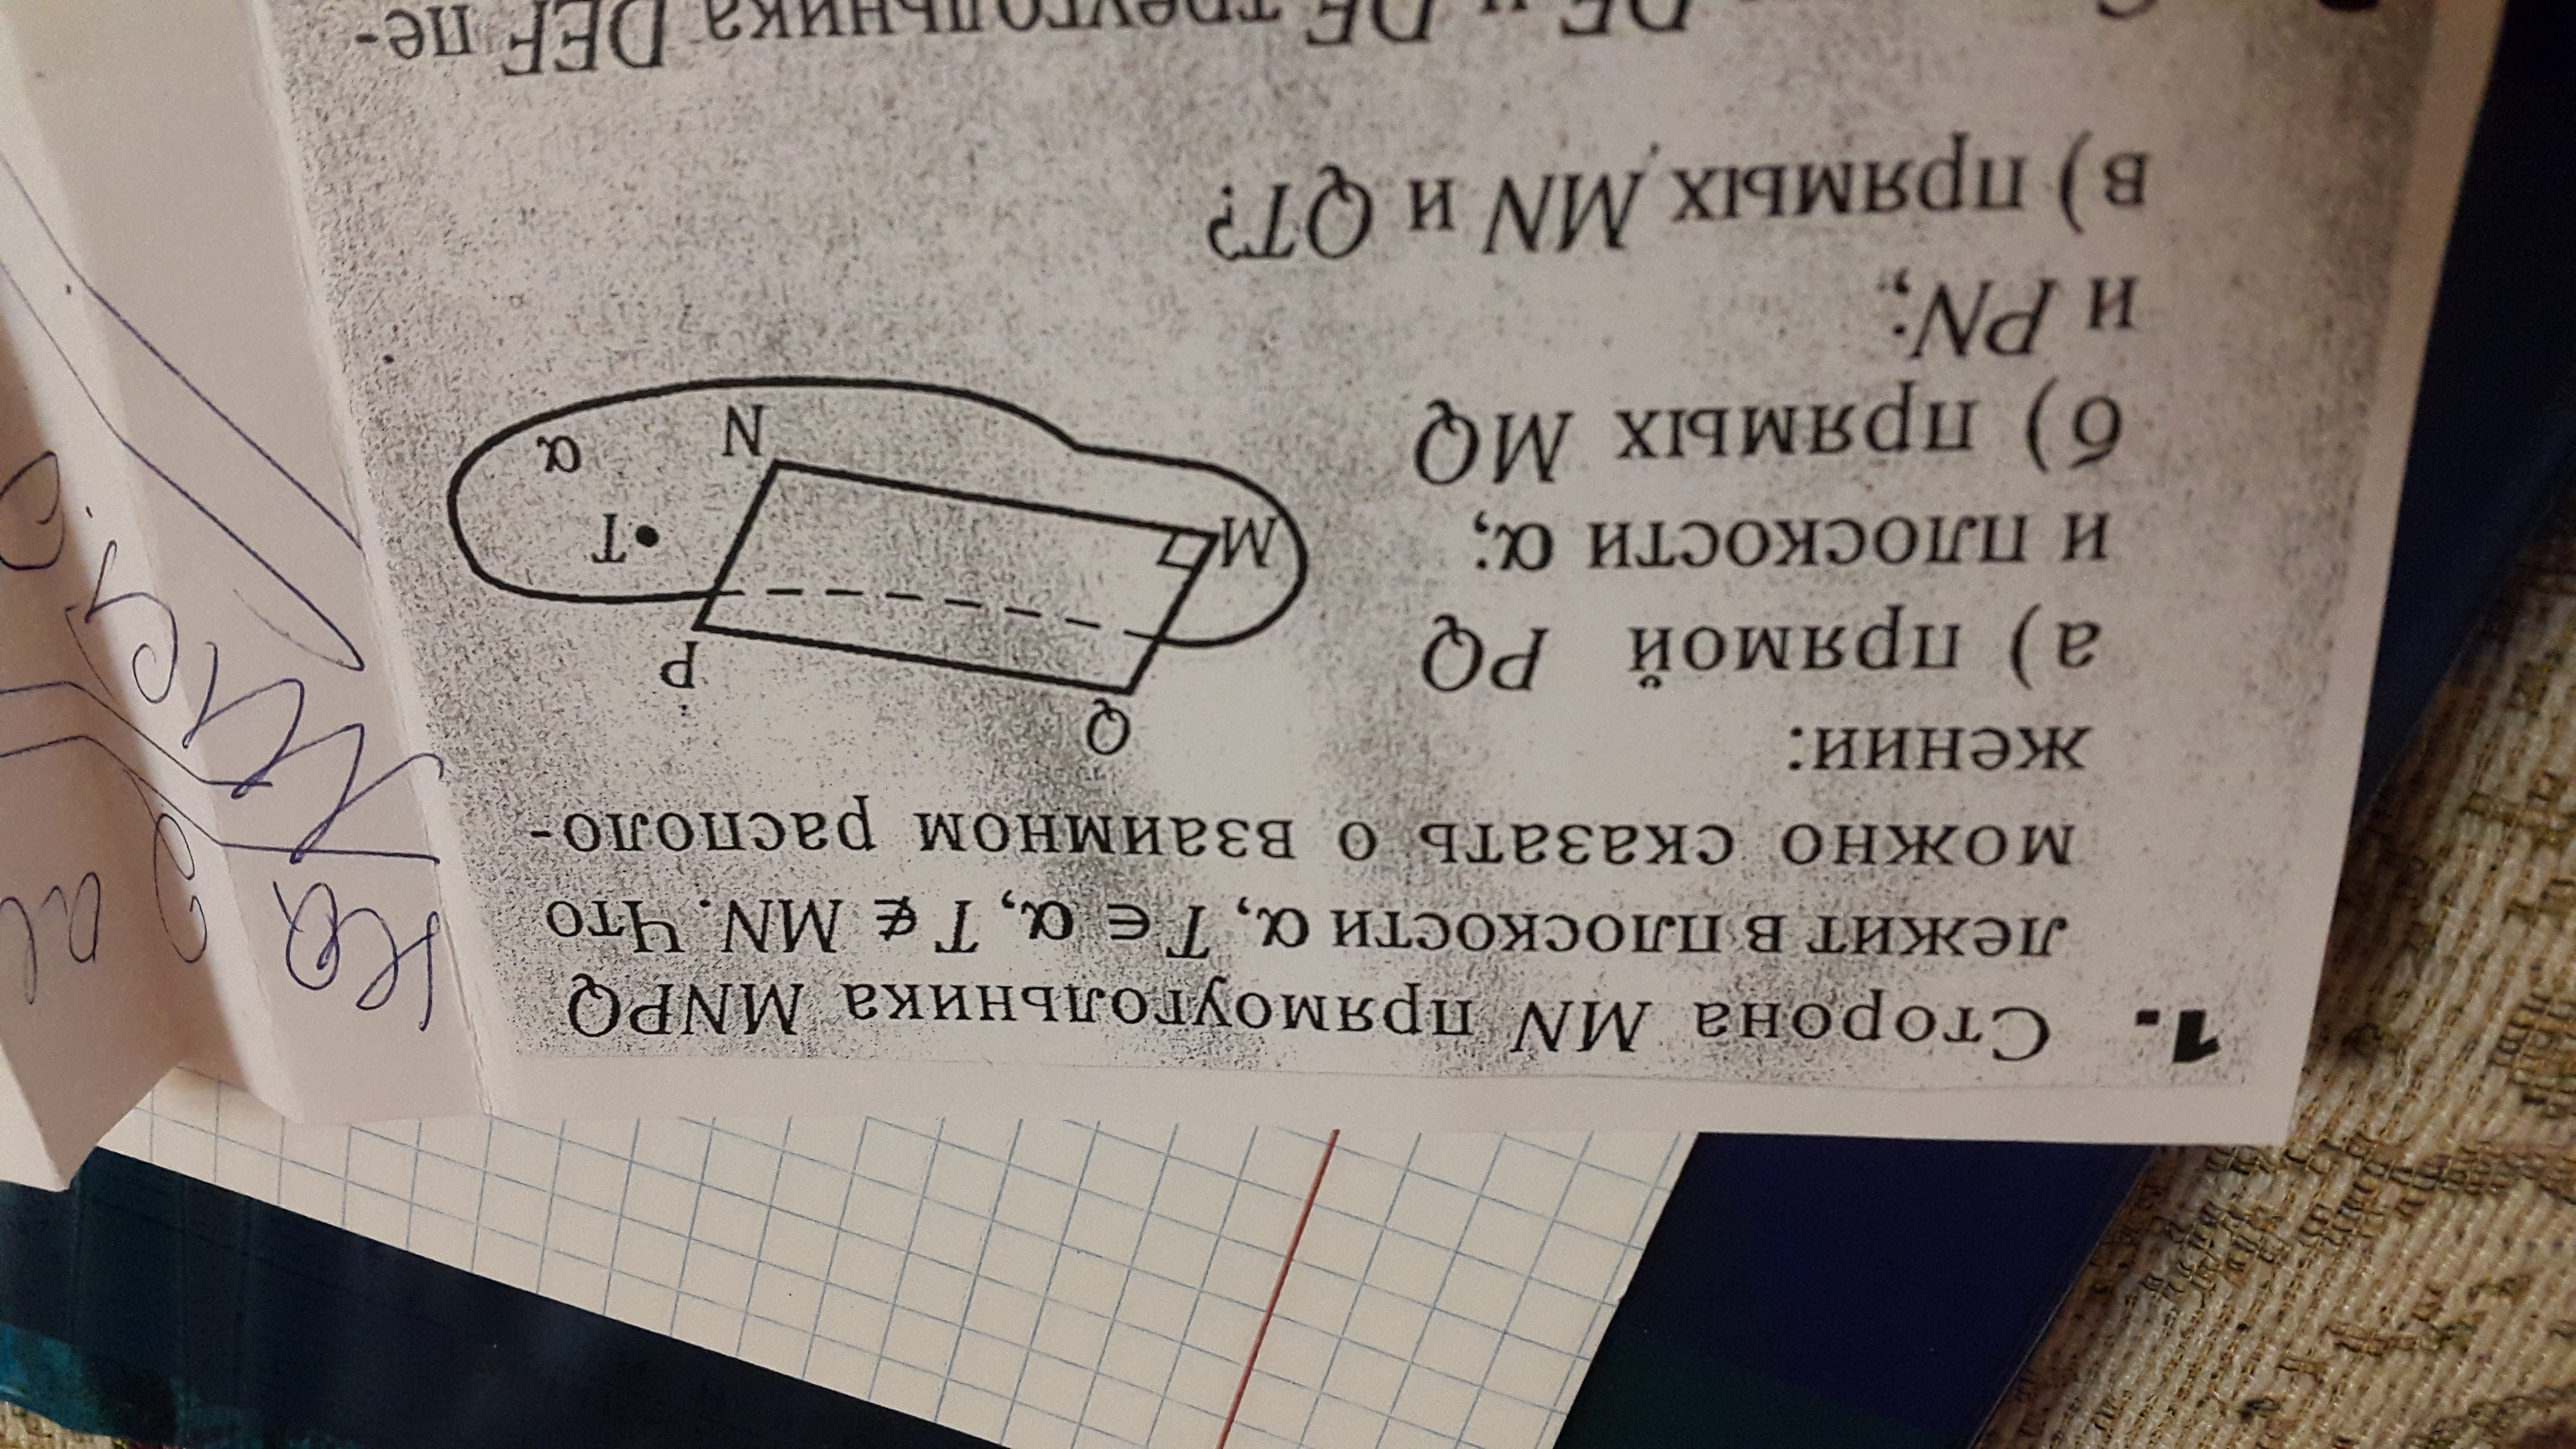 1. Сторона MN прямоугольника MNPQ
лежит в плоскости α, T ∈ α, T ∉ MN. Что
можно сказать о взаимном располо-
жении:
а) прямой PQ
и плоскости α;
б) прямых MQ
и PN;
в) прямых MN и QT?
Q
P
M
T
N
α
DE и DF треугольника DEF пе-